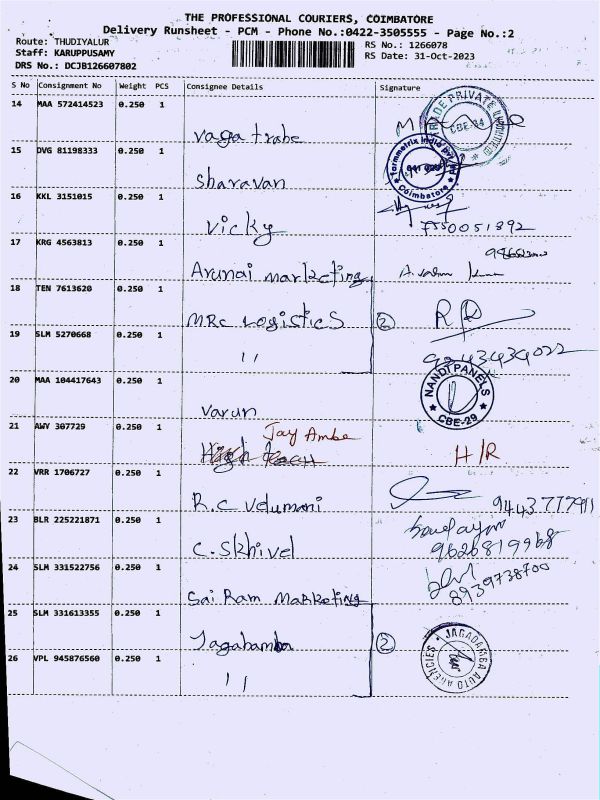 THE PROFESSIONAL COURIERS, COIMBATORE
Delivery Runsheet - PCM - Phone No.:0422-3505555 - Page No.:2
Route: THUDIYALUR
Staff: KARUPPUSAMY
DRS No.: DCJB126607802
RS No.: 1266078
RS Date: 31-Oct-2023
S No Consignment No Weight PCS Consignee Details Signature
14 MAA 572414523 0.250 1
vaga trabe
15 DVG 81198333 0.250 1
Sharavan
16 KKL 3151015 0.250 1
Vicky 7550051892
17 KRG 4563813 0.250 1
Arunai marketing
18 TEN 7613620 0.250 1
MRC Logistics 2
19 SLM 5270668 0.250 1
" 9043434022
20 MAA 104417643 0.250 1
NANDI PANELS
CBE-29
varun
21 AWY 307729 0.250 1
Jay Ambe
H/R
22 VRR 1706727 0.250 1
R.C Udumani
23 BLR 225221871 0.250 1
C. Skhivel 9626819968
24 SLM 331522756 0.250 1
8939738700
Sai Ram Marketing
25 SLM 331613355 0.250 1
Jagabamba 2
JAGADAMBA AUTO AGENCIES
26 VPL 945876560 0.250 1
"